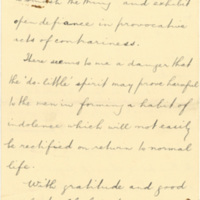 the Army and exhibit
open defiance in provocative
acts of contrariness.
There seems to me a danger that
the 'do-little' spirit may prove harmful
to the men in forming a habit of
indolence which will not easily
be rectified on return to normal
life.
With gratitude and good